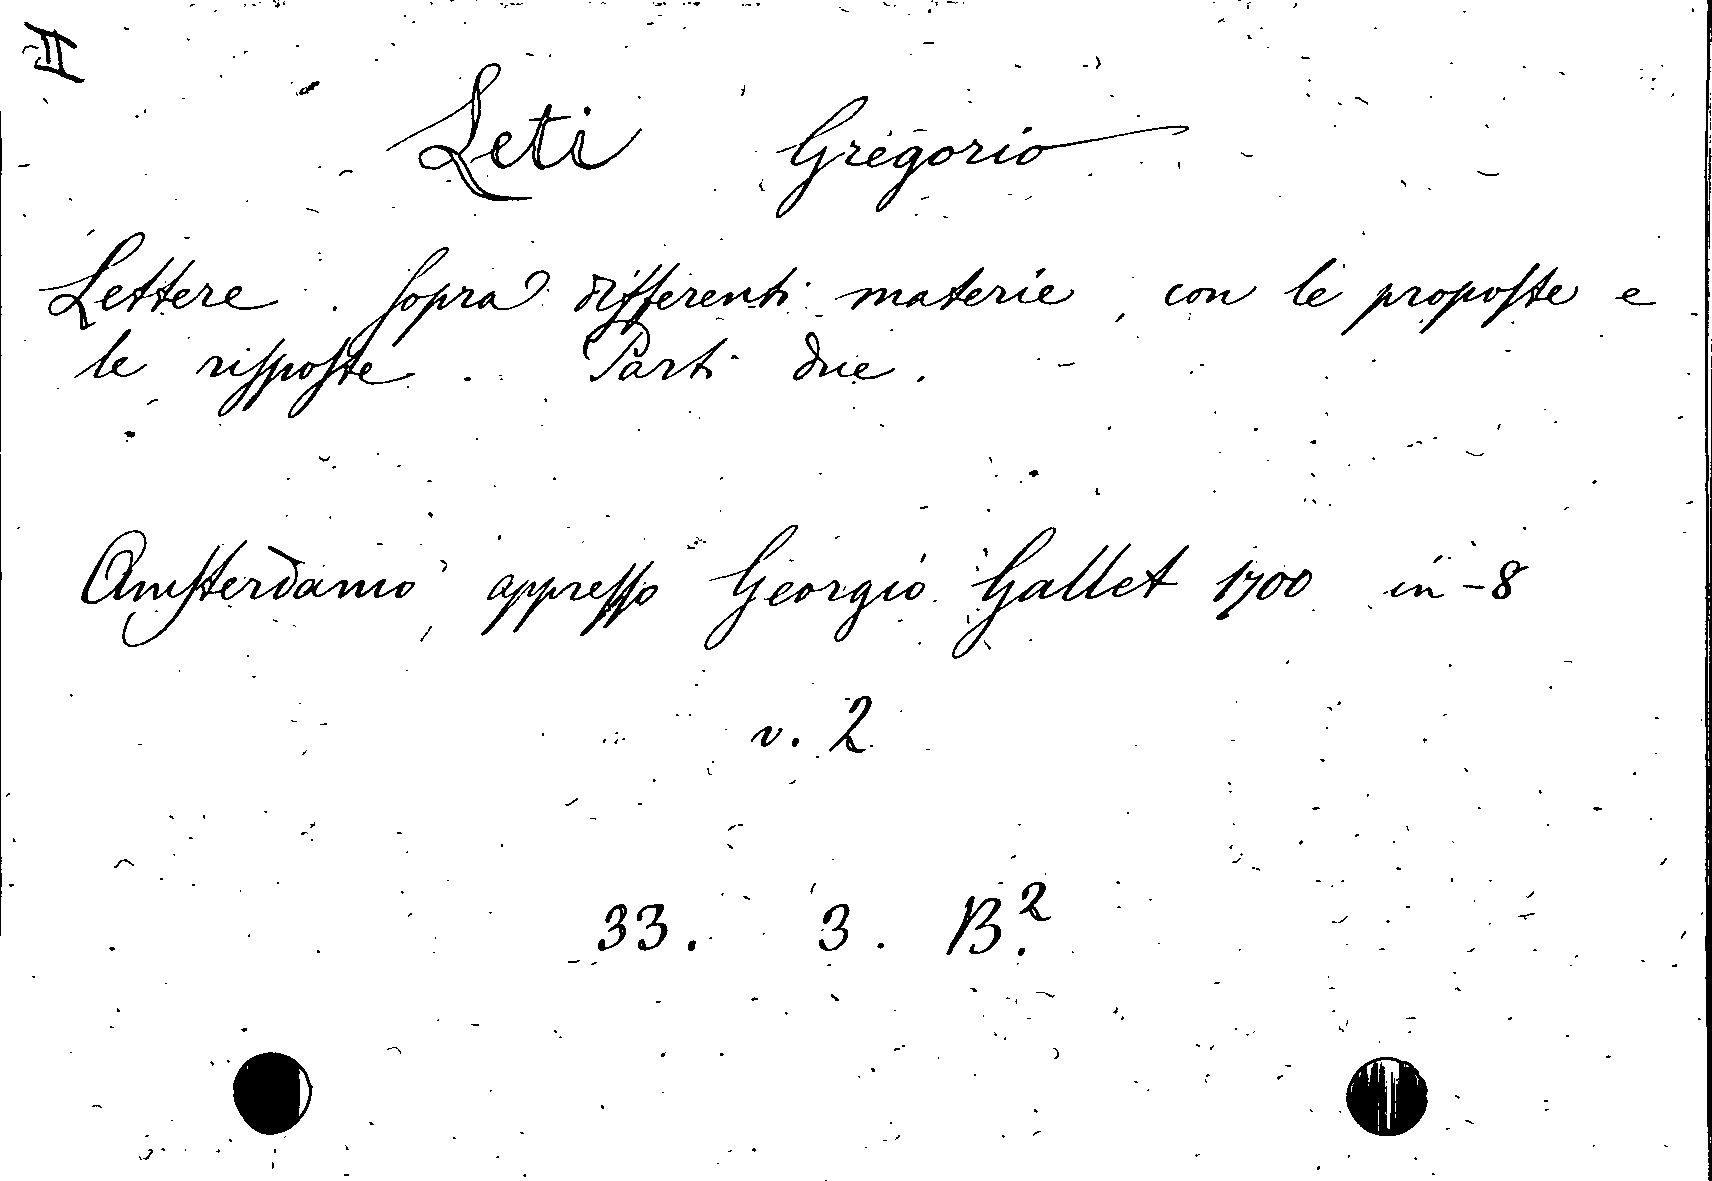 II
Leti Gregorio
Lettere. sopra differenti materie, con le proposte e
le risposte. Parti due.
Amsterdamo appresso Georgio Gallet 1700 in-8
v. 2
33. 3. B.²